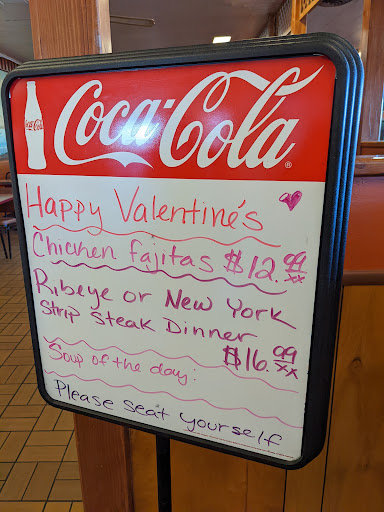 Coca-Cola
Coca-Cola ®
Happy Valentine's
Chicken fajitas $12.99
xx
Ribeye or New York
Strip Steak Dinner
$16.99
xx
Soup of the day:
Please seat yourself